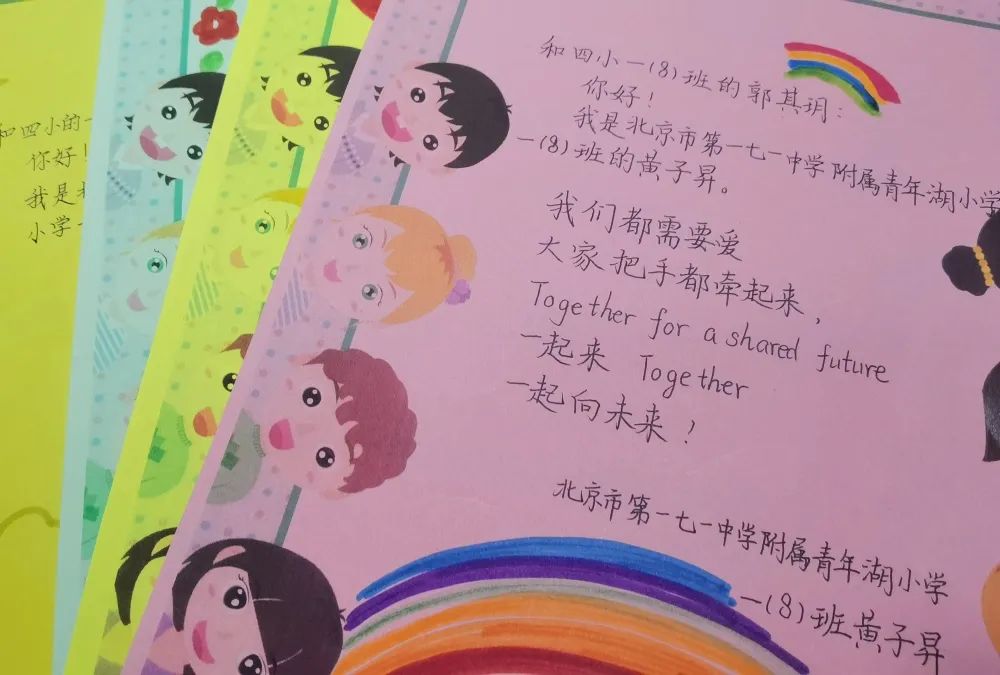 和四小一(8)班的郭其玥：
你好！
我是北京市第一七一中学附属青年湖小学
一(8)班的黄子昇。
我们都需要爱
大家把手都牵起来，
Together for a shared future
一起来 Together
一起向未来！
北京市第一七一中学附属青年湖小学
一(8)班黄子昇
和四小的一
你好！
我是
小学一